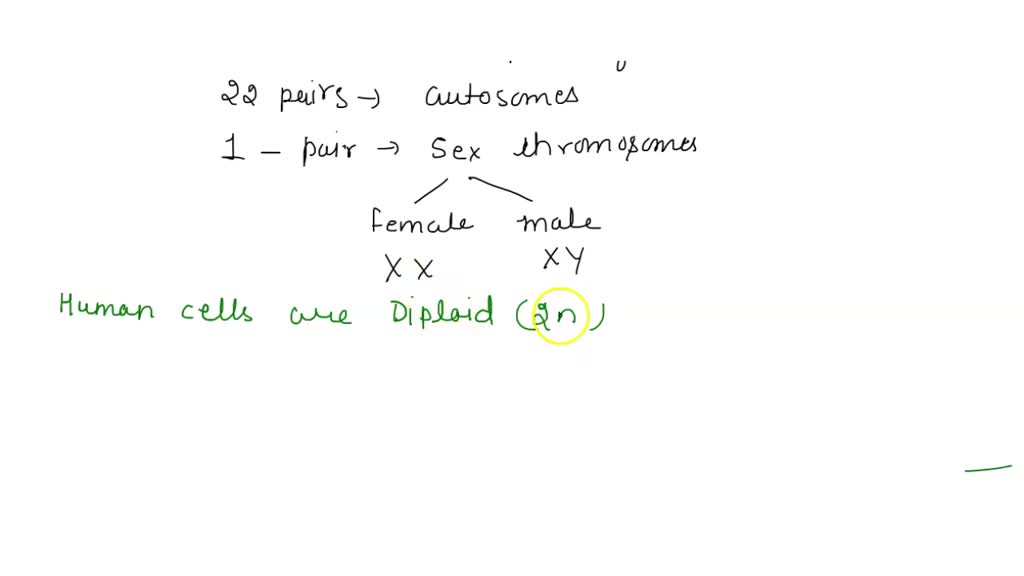 22 pairs → autosomes
1 - pair → Sex chromosomes
female male
XX XY
Human cells are Diploid (2n)